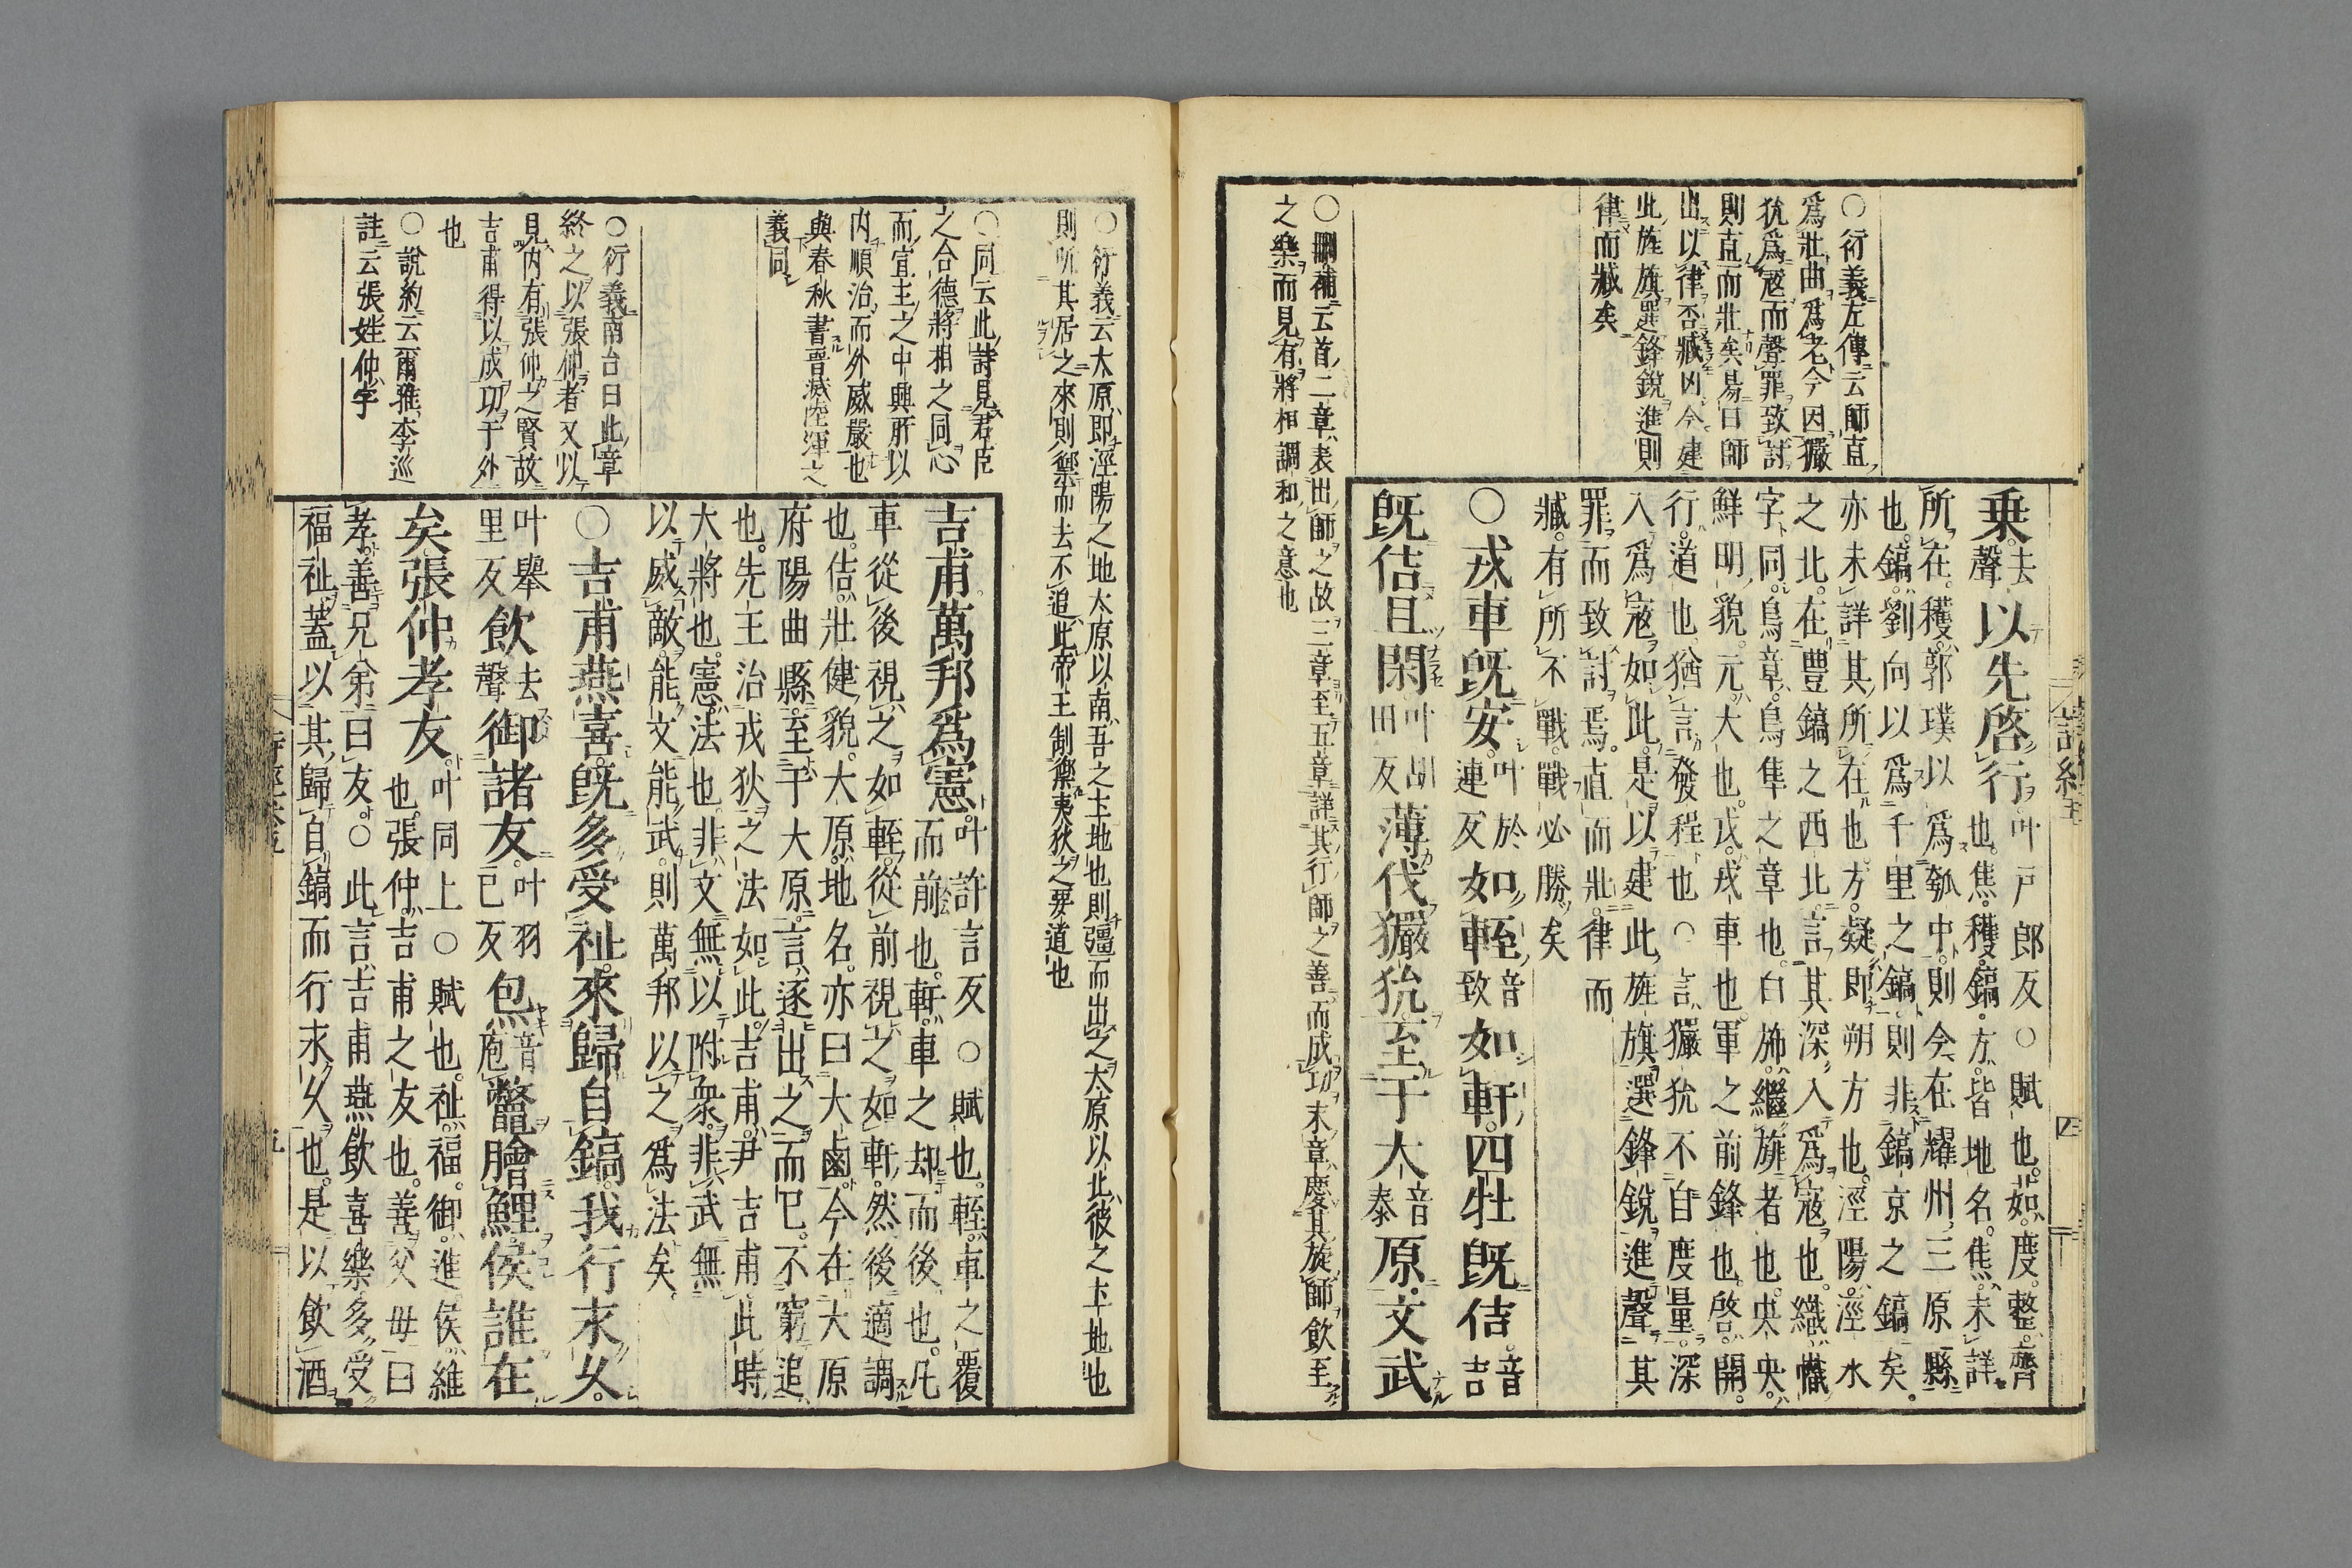 ○衍義左傳云師直
爲壯曲爲老今因玁
狁爲寇而聲罪致討
則直而壯矣易曰師
出以律否臧凶今建
此旌旗選鋒銳進則
律而臧矣
乗去聲以先啓行叶戸郎反○賦也茹度整齊
所在穫郭璞以爲瓠中則今在耀州三原縣
也焦穫鎬方皆地名焦未詳
也鎬劉向以爲千里之鎬則非鎬京之鎬矣
亦未詳其所在也方疑即朔方也涇陽涇水
之北在豐鎬之西北言其深入爲寇也織幟
字同鳥章鳥隼之章也白斾繼旐者也央央
鮮明貌元大也戎戎車也軍之前鋒也啓開
行道也猶言發程也○言玁狁不自度量深
入爲寇如此是以建此旌旗選鋒銳進聲其
罪而致討焉直而壯律而
臧有所不戰戰必勝矣
○戎車既安叶於連反如輊音致如軒四牡既佶音吉
既佶且閑叶胡田反薄伐玁狁至于大音泰原文武
○刪補云首二章表出師之故三章至五章詳其行師之善而成功末章慶其旋師飲至
之樂而見有將相調和之意也
詩經
四
○衍義云大原即涇陽之地大原以南吾之土地也則彊而出之大原以北彼之土地也
則听其居之來則禦而去不追此帝王制禦夷狄之要道也
○同云此詩見君臣
之合德將相之同心
而宣王之中興所以
内順治而外威嚴也
與春秋書晋滅陸渾之
義同
吉甫萬邦爲憲叶許言反○賦也輊車之覆
而前也軒車之却而後也凡
車從後視之如輊從前視之如軒然後適調
也佶壯健貌大原地名亦曰大鹵今在大原
府陽曲縣至于大原言逐出之而已不窮追
也先王治戎狄之法如此吉甫尹吉甫此時
大將也憲法也非文無以附衆非武無
以威敵能文能武則萬邦以之爲法矣
○衍義南台曰此章
終之以張仲者又以
見内有張仲之賢故
吉甫得以成功于外
也
○説約云爾雅李巡
註云張姓仲字
○吉甫燕喜既多受祉來歸自鎬我行永久
叶舉里反飲去聲御諸友叶羽已反炰音庖鼈膾鯉侯誰在
矣張仲孝友叶同上○賦也祉福御進侯維
也張仲吉甫之友也善父母曰
孝善兄弟曰友○此言吉甫燕飲喜樂多受
福祉蓋以其歸自鎬而行永久也是以飲酒
五